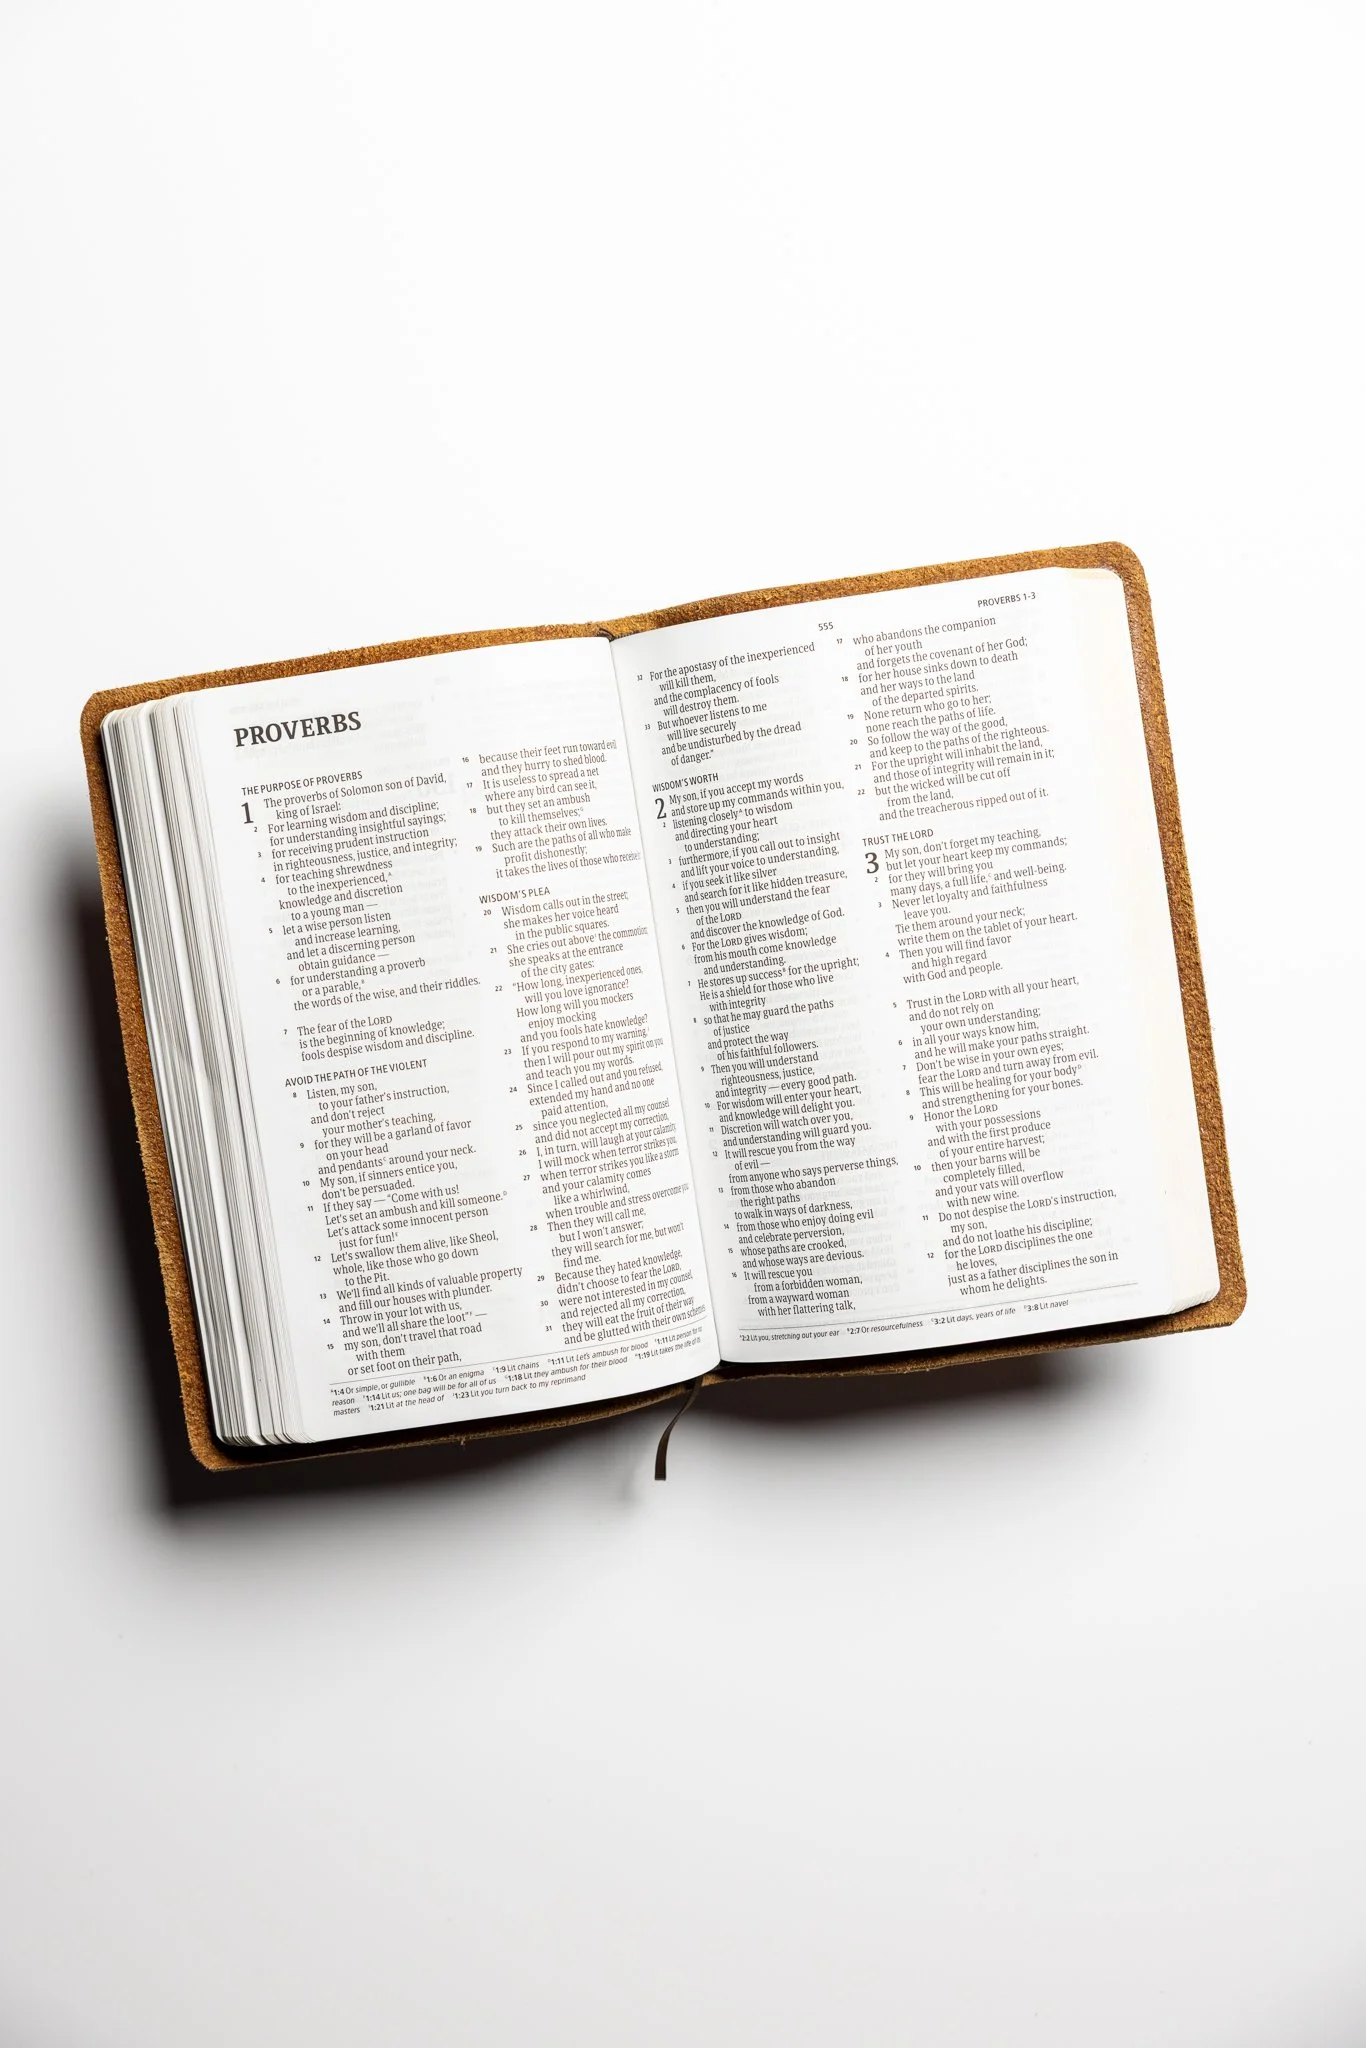 PROVERBS
THE PURPOSE OF PROVERBS
1 The proverbs of Solomon son of David,
king of Israel:
2 For learning wisdom and discipline;
for understanding insightful sayings;
3 for receiving prudent instruction
in righteousness, justice, and integrity;
4 for teaching shrewdness
to the inexperienced,ᴬ
knowledge and discretion
to a young man —
5 let a wise person listen
and increase learning,
and let a discerning person
obtain guidance —
6 for understanding a proverb
or a parable,ᴮ
the words of the wise, and their riddles.
7 The fear of the LORD
is the beginning of knowledge;
fools despise wisdom and discipline.
AVOID THE PATH OF THE VIOLENT
8 Listen, my son,
to your father's instruction,
and don't reject
your mother's teaching,
9 for they will be a garland of favor
on your head
and pendantsᶜ around your neck.
10 My son, if sinners entice you,
don't be persuaded.
11 If they say — “Come with us!
Let's set an ambush and kill someone.ᴰ
Let's attack some innocent person
just for fun!ᴱ
12 Let's swallow them alive, like Sheol,
whole, like those who go down
to the Pit.
13 We'll find all kinds of valuable property
and fill our houses with plunder.
14 Throw in your lot with us,
and we'll all share the loot”ᶠ —
15 my son, don't travel that road
with them
or set foot on their path,
16 because their feet run toward evil
and they hurry to shed blood.
17 It is useless to spread a net
where any bird can see it,
18 but they set an ambush
to kill themselves;ᴳ
they attack their own lives.
19 Such are the paths of all who make
profit dishonestly;
it takes the lives of those who
WISDOM'S PLEA
20 Wisdom calls out in the street;
she makes her voice heard
in the public squares.
21 She cries out aboveᴵ the commotion
she speaks at the entrance
of the city gates:
22 “How long, inexperienced ones,
will you love ignorance?
How long will you mockers
enjoy mocking
and you fools hate knowledge?
23 If you respond to my warning,ᴶ
then I will pour out my spirit on you
and teach you my words.
24 Since I called out and you refused,
extended my hand and no one
paid attention,
25 since you neglected all my counsel
and did not accept my correction,
26 I, in turn, will laugh at your calamity.
I will mock when terror strikes you,
27 when terror strikes you like a storm
and your calamity comes
like a whirlwind,
when trouble and stress overcome you.
28 Then they will call me,
but I won't answer;
they will search for me, but won't
find me.
29 Because they hated knowledge,
didn't choose to fear the LORD,
30 were not interested in my counsel,
and rejected all my correction,
31 they will eat the fruit of their way
and be glutted with their own schemes.
ᴬ1:4 Or simple, or gullible ᴮ1:6 Or an enigma ᶜ1:9 Lit chains ᴰ1:11 Lit Let's ambush for blood ᴱ1:11 Lit person for no
reason ᶠ1:14 Lit us; one bag will be for all of us ᴳ1:18 Lit they ambush for their blood ᴴ1:19 Lit takes the life of its
masters ᴵ1:21 Lit at the head of ᴶ1:23 Lit you turn back to my reprimand
555
PROVERBS 1-3
32 For the apostasy of the inexperienced
will kill them,
and the complacency of fools
will destroy them.
33 But whoever listens to me
will live securely
and be undisturbed by the dread
of danger.”
WISDOM'S WORTH
2 My son, if you accept my words
and store up my commands within you,
2 listening closelyᴬ to wisdom
and directing your heart
to understanding;
3 furthermore, if you call out to insight
and lift your voice to understanding,
4 if you seek it like silver
and search for it like hidden treasure,
5 then you will understand the fear
of the LORD
and discover the knowledge of God.
6 For the LORD gives wisdom;
from his mouth come knowledge
and understanding.
7 He stores up successᴮ for the upright;
He is a shield for those who live
with integrity
8 so that he may guard the paths
of justice
and protect the way
of his faithful followers.
9 Then you will understand
righteousness, justice,
and integrity — every good path.
10 For wisdom will enter your heart,
and knowledge will delight you.
11 Discretion will watch over you,
and understanding will guard you.
12 It will rescue you from the way
of evil —
from anyone who says perverse things,
13 from those who abandon
the right paths
to walk in ways of darkness,
14 from those who enjoy doing evil
and celebrate perversion,
15 whose paths are crooked,
and whose ways are devious.
16 It will rescue you
from a forbidden woman,
from a wayward woman
with her flattering talk,
17 who abandons the companion
of her youth
and forgets the covenant of her God;
18 for her house sinks down to death
and her ways to the land
of the departed spirits.
19 None return who go to her;
none reach the paths of life.
20 So follow the way of the good,
and keep to the paths of the righteous.
21 For the upright will inhabit the land,
and those of integrity will remain in it;
22 but the wicked will be cut off
from the land,
and the treacherous ripped out of it.
TRUST THE LORD
3 My son, don't forget my teaching,
but let your heart keep my commands;
2 for they will bring you
many days, a full life,ᶜ and well-being.
3 Never let loyalty and faithfulness
leave you.
Tie them around your neck;
write them on the tablet of your heart.
4 Then you will find favor
and high regard
with God and people.
5 Trust in the LORD with all your heart,
and do not rely on
your own understanding;
6 in all your ways know him,
and he will make your paths straight.
7 Don't be wise in your own eyes;
fear the LORD and turn away from evil.
8 This will be healing for your bodyᴰ
and strengthening for your bones.
9 Honor the LORD
with your possessions
and with the first produce
of your entire harvest;
10 then your barns will be
completely filled,
and your vats will overflow
with new wine.
11 Do not despise the LORD's instruction,
my son,
and do not loathe his discipline;
12 for the LORD disciplines the one
he loves,
just as a father disciplines the son in
whom he delights.
ᴬ2:2 Lit you, stretching out your ear ᴮ2:7 Or resourcefulness ᶜ3:2 Lit days, years of life ᴰ3:8 Lit navel